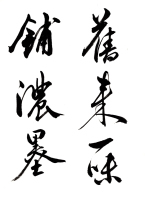 舊来一味
鋪濃墨